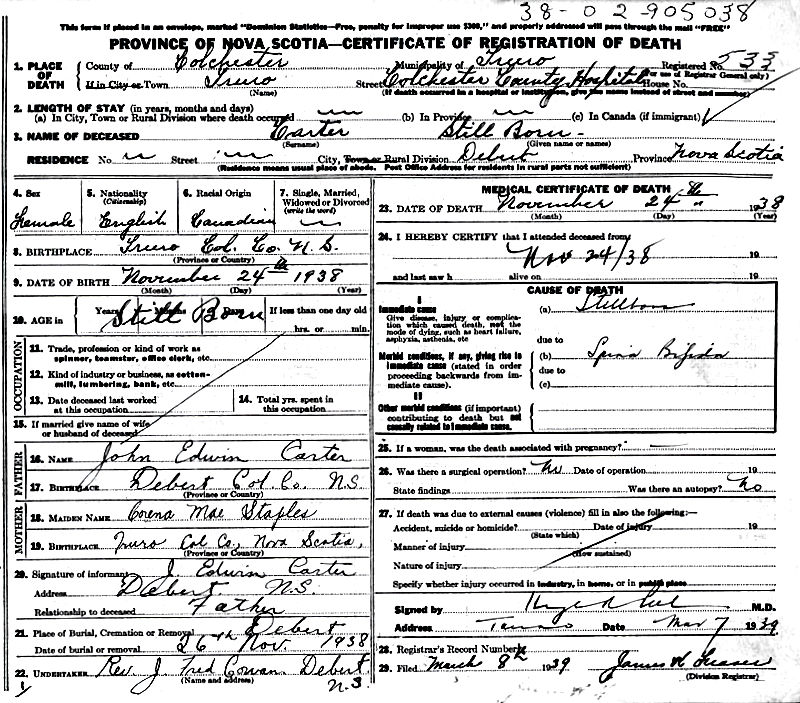 38-02-905038
This form if placed in an envelope, marked "Dominion Statistics—Free, penalty for improper use $300," and properly addressed will pass through the mail "FREE"
PROVINCE OF NOVA SCOTIA—CERTIFICATE OF REGISTRATION OF DEATH
1. PLACE OF DEATH
County of Colchester Municipality of Truro Registered No. 533
(For use of Registrar General only)
If in City or Town Truro Street Colchester County Hospital House No.
(Name) (If death occurred in a hospital or institution, give the name instead of street and number)
2. LENGTH OF STAY (in years, months and days)
(a) In City, Town or Rural Division where death occurred (b) In Province (c) In Canada (if immigrant)
3. NAME OF DECEASED Carter Still Born -
(Surname) (Given name or names)
RESIDENCE No. Street City, Town or Rural Division Debert Province Nova Scotia
(Residence means usual place of abode. Post Office Address for residents in rural parts not sufficient)
4. Sex
Female
5. Nationality
(Citizenship)
English
6. Racial Origin
Canadian
7. Single, Married, Widowed or Divorced
(write the word)
8. BIRTHPLACE Truro Col. Co. N.S.
(Province or Country)
9. DATE OF BIRTH November 24th 1938
(Month) (Day) (Year)
10. AGE in Years Months Days If less than one day old
Still Born
hrs. or min.
OCCUPATION
11. Trade, profession or kind of work as
spinner, teamster, office clerk, etc.
12. Kind of industry or business, as cotton-
mill, lumbering, bank, etc.
13. Date deceased last worked
at this occupation
14. Total yrs. spent in
this occupation
15. If married give name of wife
or husband of deceased
FATHER
16. NAME John Edwin Carter
17. BIRTHPLACE Debert Col. Co. N.S.
(Province or Country)
MOTHER
18. MAIDEN NAME Corena Mae Staples
19. BIRTHPLACE Truro Col Co, Nova Scotia,
(Province or Country)
20. Signature of informant J. Edwin Carter
Address Debert N.S.
Relationship to deceased Father
21. Place of Burial, Cremation or Removal Debert
Date of burial or removal 26th Nov. 1938
22. UNDERTAKER Rev. J. Fred Cowan. Debert
(Name and address) N.S.
MEDICAL CERTIFICATE OF DEATH
23. DATE OF DEATH November 24th 1938
(Month) (Day) (Year)
24. I HEREBY CERTIFY that I attended deceased from
Nov 24/38 19
and last saw h alive on 19
CAUSE OF DEATH
I
Immediate cause
Give disease, injury or complica-
tion which caused death, not the
mode of dying, such as heart failure,
asphyxia, asthenia, etc
(a) Stillborn
due to
Morbid conditions, if any, giving rise to
immediate cause (stated in order
proceeding backwards from im-
mediate cause).
(b) Spina Bifida
due to
(c)
II
Other morbid conditions (if important)
contributing to death but not
causally related to immediate cause.
25. If a woman, was the death associated with pregnancy? —
26. Was there a surgical operation? No Date of operation 19
State findings Was there an autopsy? No
27. If death was due to external causes (violence) fill in also the following:—
Accident, suicide or homicide? Date of injury 19
(State which)
Manner of injury
(How sustained)
Nature of injury
Specify whether injury occurred in industry, in home, or in public place
Signed by M.D.
Address Truro Date Mar 7 1939
28. Registrar's Record Number
29. Filed March 8th 1939 James
(Division Registrar)